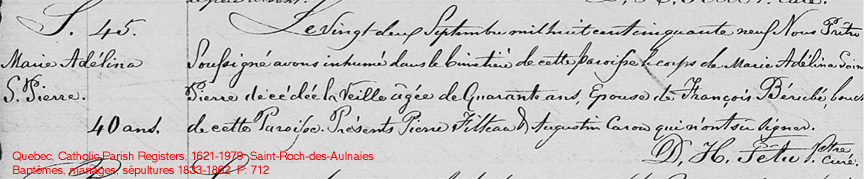 S. 45.
Marie Adélina
S. Pierre.
40 ans.
Le vingt deux Septembre mil huit cent cinquante neuf Nous Prêtre
Soussigné avons inhumé dans le Cimetière de cette Paroisse le corps de Marie Adélina Saint
Pierre décédée la Veille agée de Quarante ans, Epouse de François Bérubé
de cette Paroisse. Présents Pierre Filteau & Augustin Caron qui n'ont su signer.
D. H. Têtu Ptre
curé.
Quebec, Catholic Parish Registers, 1621-1979 Saint-Roch-des-Aulnaies
Baptêmes, mariages, sépultures 1833-1862 P. 712